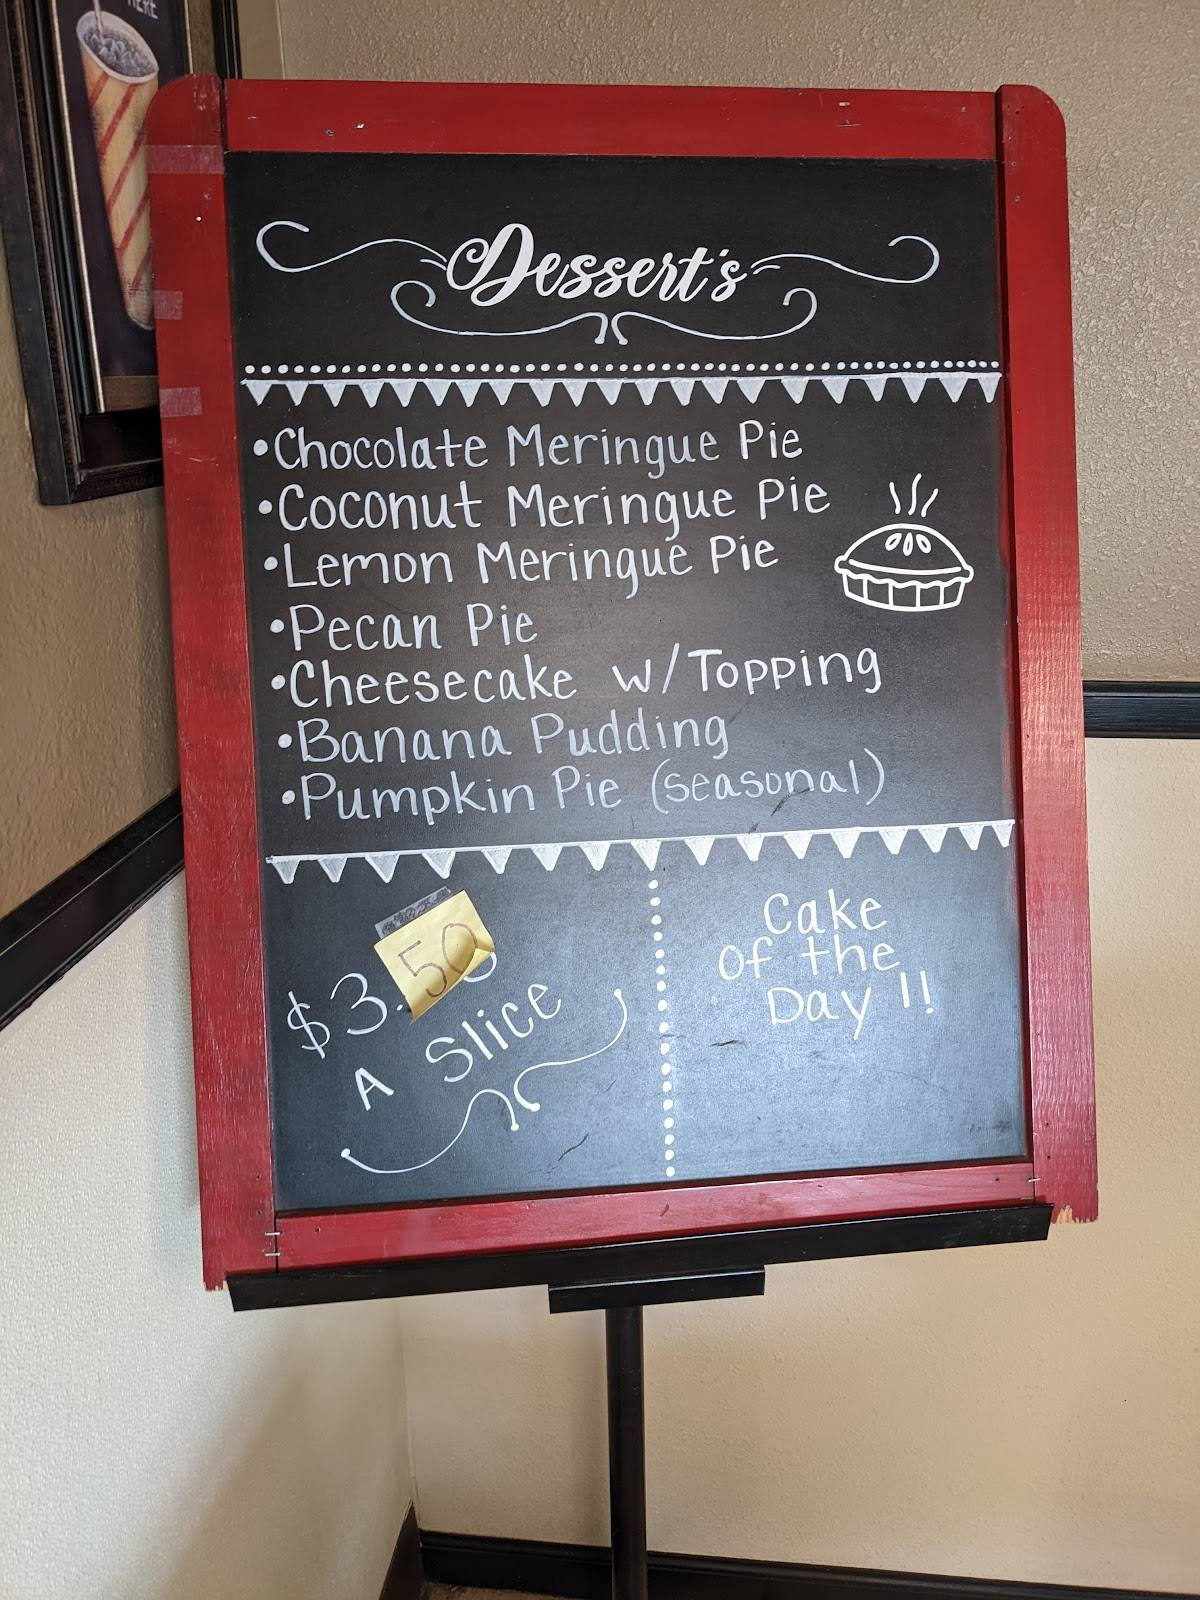 HERE
Dessert's
•Chocolate Meringue Pie
•Coconut Meringue Pie
•Lemon Meringue Pie
•Pecan Pie
•Cheesecake w/Topping
•Banana Pudding
•Pumpkin Pie (seasonal)
$3.50
A Slice
Cake
of the
Day !!